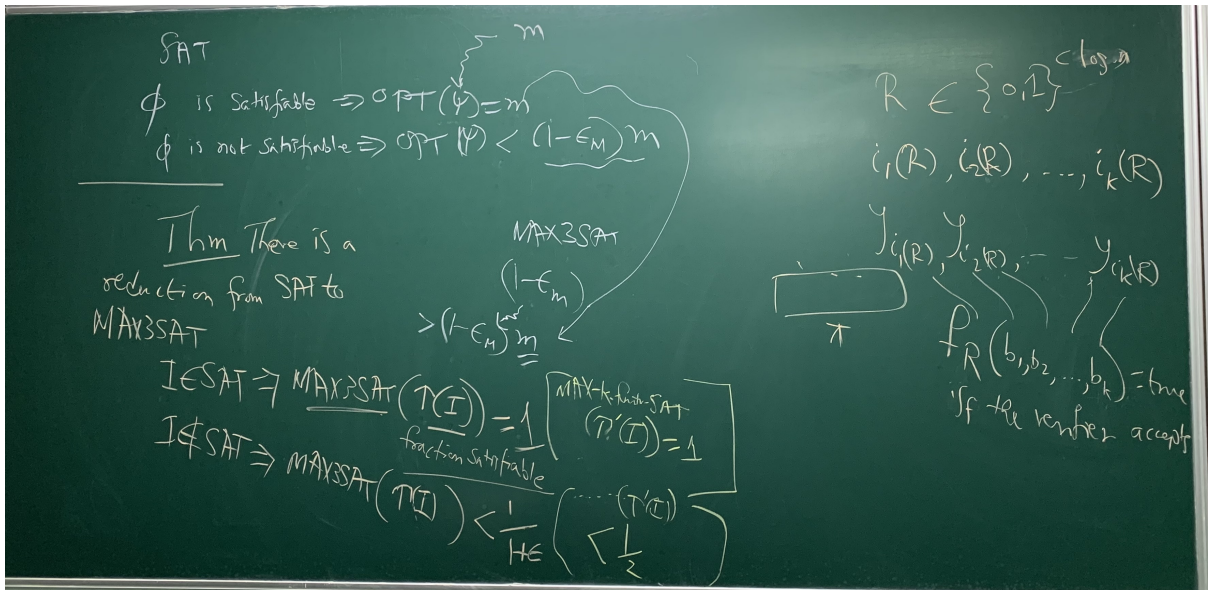 SAT
m
ϕ is satisfiable ⇒ OPT(ψ)=m
ϕ is not satisfiable ⇒ OPT(ψ) < (1-ϵ_M) m
Thm There is a
reduction from SAT to
MAX3SAT
MAX3SAT
(1-ϵ_m)
>(1-ϵ_M) m
I∈SAT ⇒ MAX3SAT(T(I)) = 1
fraction satisfiable
I∉SAT ⇒ MAX3SAT(T(I)) < 1/1+ϵ
MAX-k-function-SAT
(T'(I)) = 1
......(T'(I))
< 1/2
R ∈ {0,1}^c log n
i_1(R), i_2(R), ..., i_k(R)
y_i_1(R), y_i_2(R), ... y_i_k(R)
π
f_R(b_1, b_2, ..., b_k) = true
if the verifier accepts